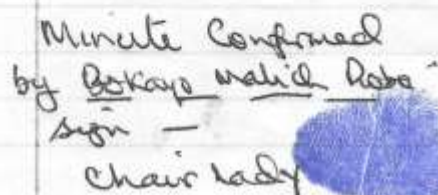 Minute Confirmed
by Bokayo Malich Roba
sign —
Chair Lady